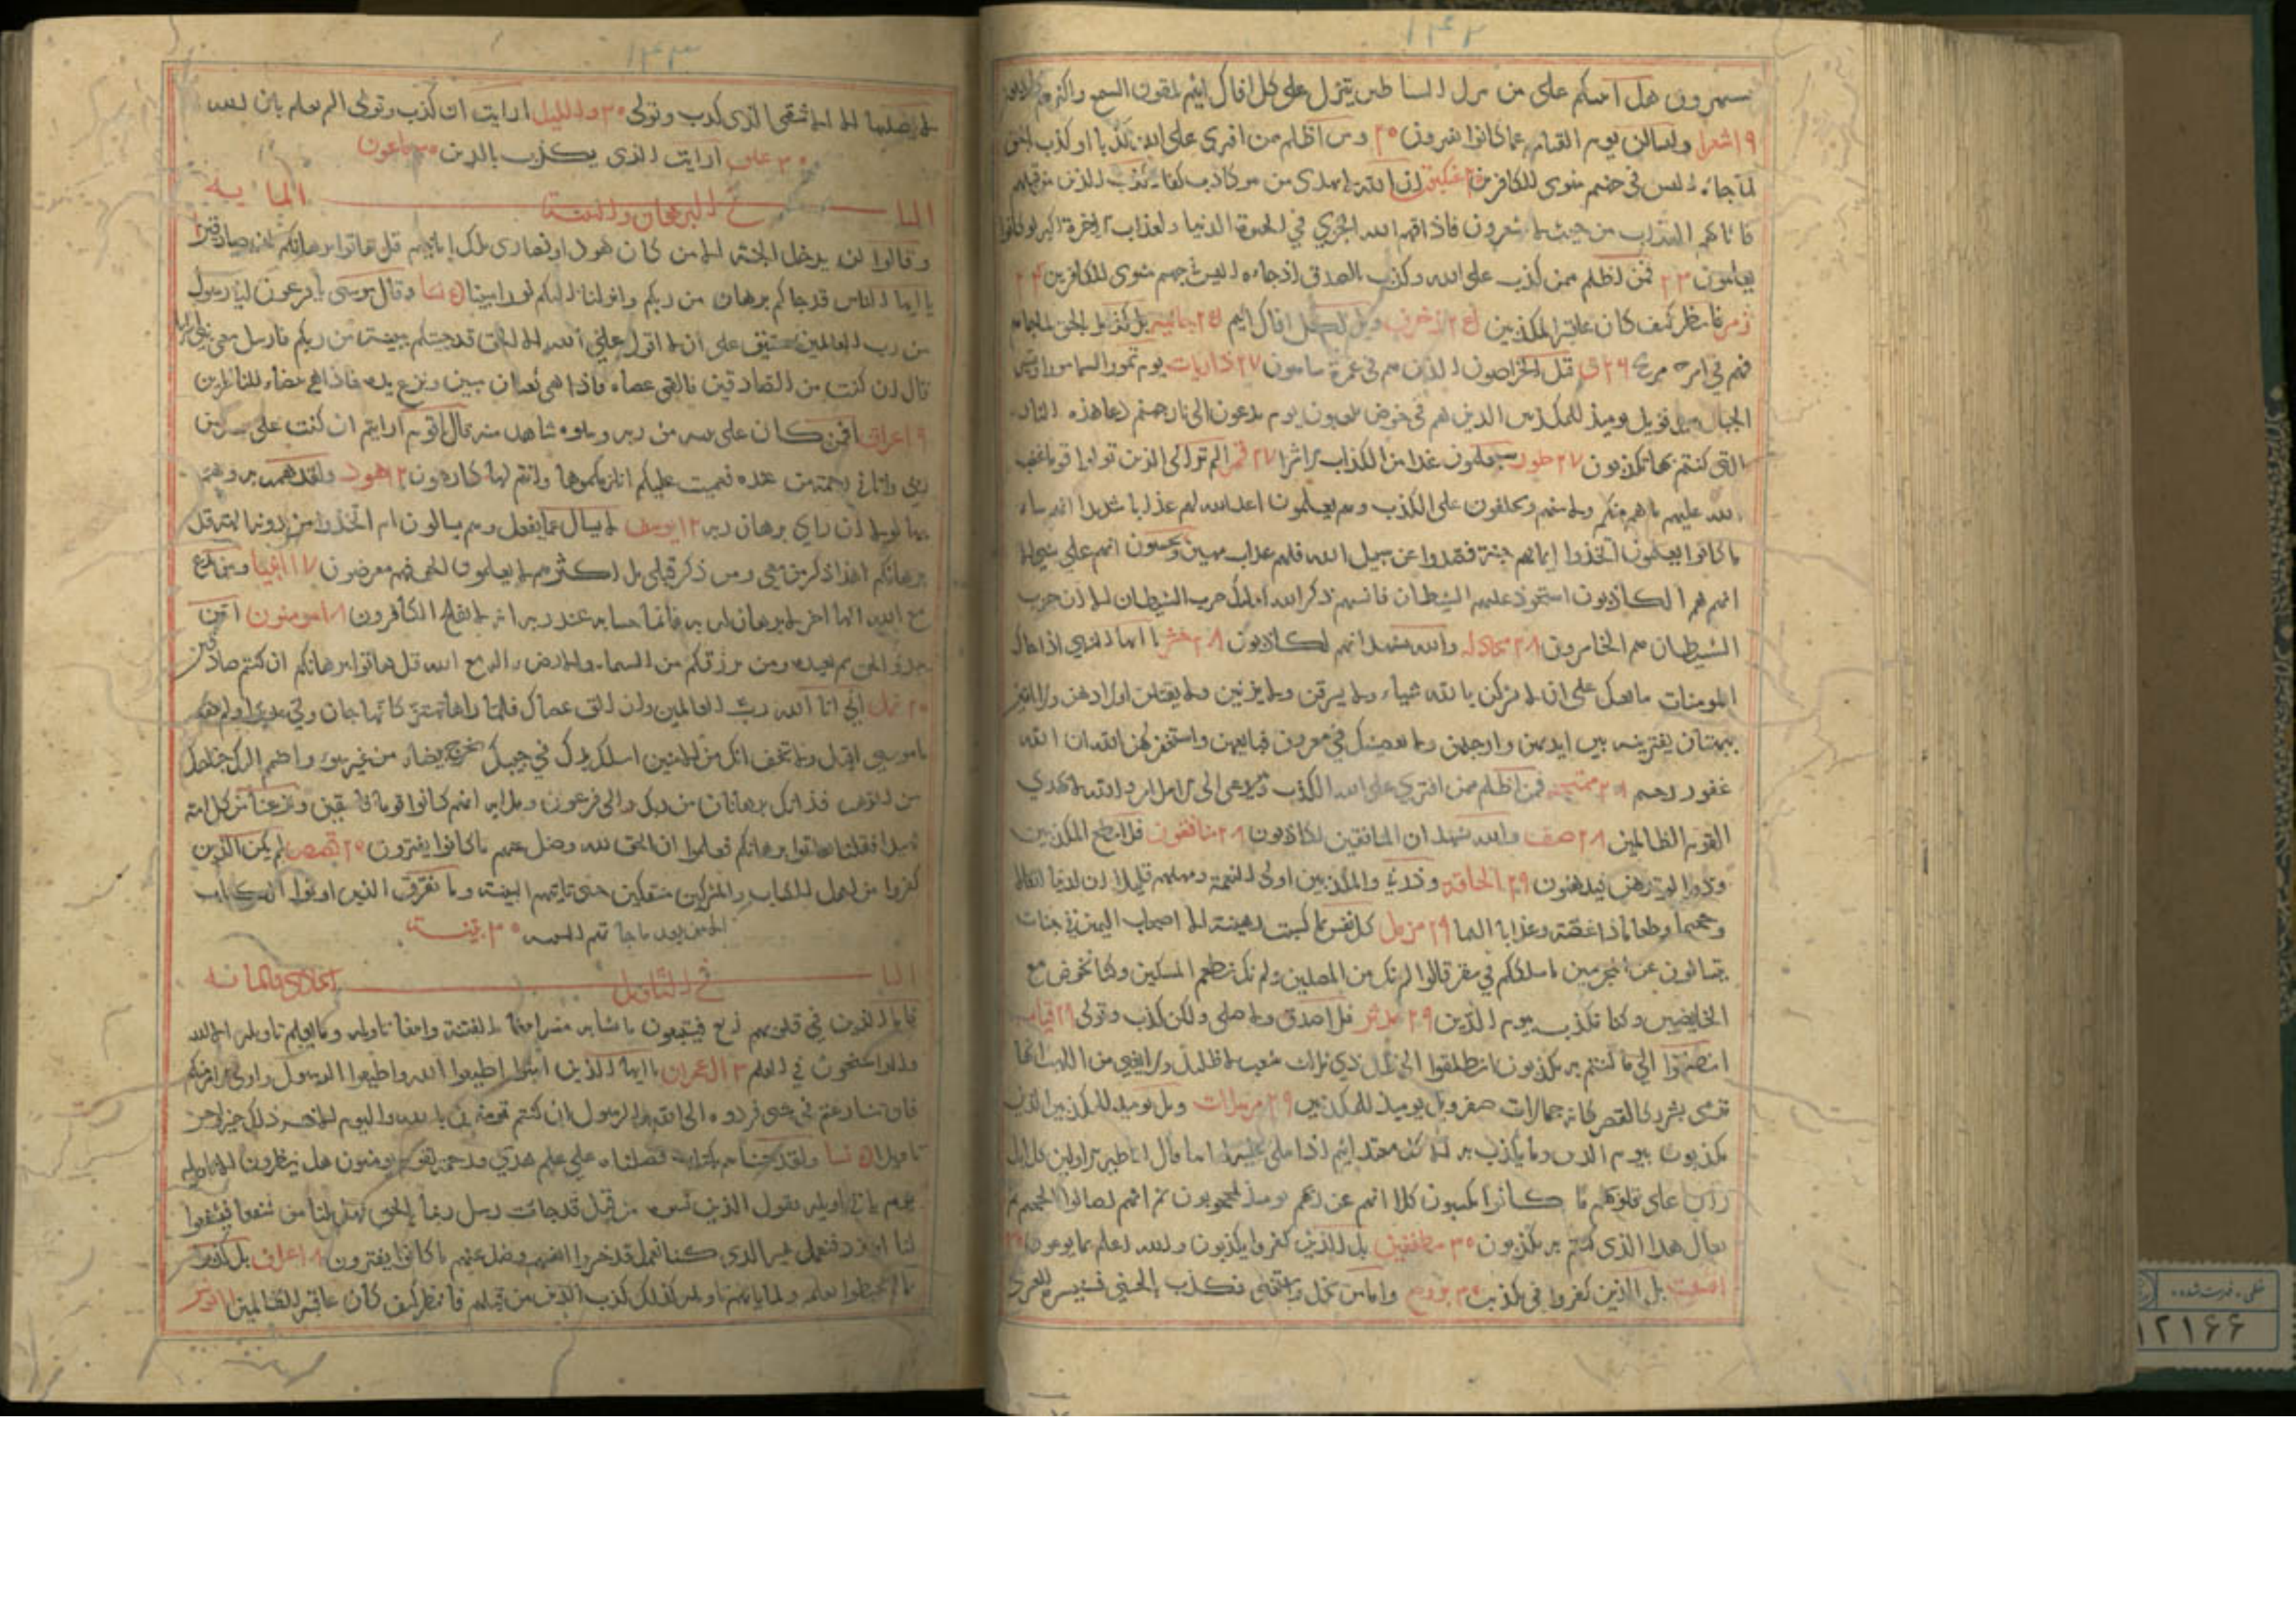 ١٤٢
هل انبئكم على من تنزل الشياطين تنزل على كل افاك اثيم يلقون السمع واكثرهم كاذبون
١٩ شعرا وليسالن يوم القيامه عما كانوا يفترون ٢٠ ومن اظلم ممن افترى على الله كذبا او كذب بالحق
لما جاءه اليس في جهنم مثوى للكافرين عنكبوت ان الله لا يهدى من هو كاذب كفار كذب الذين من قبلهم
فاتاهم العذاب من حيث لا يشعرون فاذاقهم الله الخزي في الحيوة الدنيا ولعذاب الاخرة اكبر لو كانوا
يعلمون ٢٣ فمن اظلم ممن كذب على الله وكذب بالصدق اذ جاءه اليس في جهنم مثوى للكافرين ٢٤
زمر فانظر كيف كان عاقبة المكذبين ٢٥ زخرف ويل لكل افاك اثيم ٢٥ جاثيه بل كذبوا بالحق لما جاءهم
فهم في امر مريج ٢٦ ق قتل الخراصون الذين هم في غمرة ساهون ٢٧ ذاريات يوم تمور السماء مورا وتسير
الجبال سيرا فويل يومئذ للمكذبين الذين هم في خوض يلعبون يوم يدعون الى نار جهنم دعا هذه النار
التي كنتم بها تكذبون ٢٧ طور سيعلمون غدا من الكذاب الاشر ٢٧ قمر الم تر الى الذين تولوا قوما غضب
الله عليهم ما هم منكم ولا منهم ويحلفون على الكذب وهم يعلمون اعد الله لهم عذابا شديدا انهم ساء
ما كانوا يعملون اتخذوا ايمانهم جنة فصدوا عن سبيل الله فلهم عذاب مهين ويحسبون انهم على شيء الا
انهم هم الكاذبون استحوذ عليهم الشيطان فانسيهم ذكر الله اولئك حزب الشيطان الا ان حزب
الشيطان هم الخاسرون ٢٨ مجادله والله يشهد انهم لكاذبون ٢٨ حشر يا ايها النبي اذا جاءك
المومنات يبايعنك على ان لا يشركن بالله شيئا ولا يسرقن ولا يزنين ولا يقتلن اولادهن ولا ياتين
ببهتان يفترينه بين ايديهن وارجلهن ولا يعصينك في معروف فبايعهن واستغفر لهن الله ان الله
غفور رحيم ٢٨ ممتحنه فمن اظلم ممن افترى على الله الكذب وهو يدعى الى الاسلام والله لا يهدي
القوم الظالمين ٢٨ صف والله يشهد ان المنافقين لكاذبون ٢٨ منافقون فلا تطع المكذبين
ودوا لو تدهن فيدهنون ٢٩ الحاقة وذرني والمكذبين اولى النعمة ومهلهم قليلا ان لدينا انكالا
وجحيما وطعاما ذا غصة وعذابا اليما ٢٩ مزمل كل نفس بما كسبت رهينة الا اصحاب اليمين في جنات
يتسائلون عن المجرمين ما سلككم في سقر قالوا لم نك من المصلين ولم نك نطعم المسكين وكنا نخوض مع
الخائضين وكنا نكذب بيوم الدين ٢٩ مدثر فلا صدق ولا صلى ولكن كذب وتولى ٢٩ قيامه
انطلقوا الى ما كنتم به تكذبون انطلقوا الى ظل ذي ثلاث شعب لا ظليل ولا يغني من اللهب انها
ترمى بشرر كالقصر كانه جمالات صفر ويل يومئذ للمكذبين ٢٩ مرسلات ويل يومئذ للمكذبين الذين
يكذبون بيوم الدين وما يكذب به الا كل معتد اثيم اذا تتلى عليه اياتنا قال اساطير الاولين كلا بل
ران على قلوبهم ما كانوا يكسبون كلا انهم عن ربهم يومئذ لمحجوبون ثم انهم لصالوا الجحيم ثم
يقال هذا الذى كنتم به تكذبون ٣٠ مطففين بل الذين كفروا يكذبون والله اعلم بما يوعون ٣٠
انشقت بل الذين كفروا في تكذيب ٣٠ بروج واما من بخل واستغنى وكذب بالحسنى فسنيسره للعسرى
١٤٣
لا يصليها الا الاشقى الذى كذب وتولى ٣٠ والليل ارايت ان كذب وتولى الم يعلم بان الله
٣٠ علق ارايت الذى يكذب بالدين ٣٠ ماعون
البا فى البرهان والبينة
وقالوا لن يدخل الجنة الا من كان هودا او نصارى تلك امانيهم قل هاتوا برهانكم ان كنتم صادقين
يا ايها الناس قد جاءكم برهان من ربكم وانزلنا اليكم نورا مبينا نسا وقال موسى يا فرعون انى رسول
من رب العالمين حقيق على ان لا اقول على الله الا الحق قد جئتكم ببينة من ربكم فارسل معى بنى اسرائيل
قال ان كنت من الصادقين فالقى عصاه فاذا هى ثعبان مبين ونزع يده فاذا هى بيضاء للناظرين
٩ اعراف افمن كان على بينة من ربه ويتلوه شاهد منه قال يا قوم ارايتم ان كنت على بينة من
ربى واتاني رحمة من عنده فعميت عليكم انلزمكموها وانتم لها كارهون ١٢ هود ولقد همت به وهم
بها لولا ان راى برهان ربه ١٢ يوسف لا يسال عما يفعل وهم يسالون ام اتخذوا من دونه الهة قل
برهانكم هذا ذكر من معى ومن ذكر قبلى بل اكثرهم لا يعلمون الحق فهم معرضون ١٧ انبيا ومن يدع
مع الله الها اخر لا برهان له به فانما حسابه عند ربه انه لا يفلح الكافرون ١٨ مومنون امن
يبدؤ الخلق ثم يعيده ومن يرزقكم من السماء والارض ءاله مع الله قل هاتوا برهانكم ان كنتم صادقين
٢٠ نمل اني انا الله رب العالمين وان الق عصاك فلما راها تهتز كانها جان ولى مدبرا ولم يعقب
يا موسى اقبل ولا تخف انك من الامنين اسلك يدك في جيبك تخرج بيضاء من غير سوء واضمم اليك جناحك
من الرهب فذانك برهانان من ربك الى فرعون وملائه انهم كانوا قوما فاسقين ونزعنا من كل امة
شهيدا فقلنا هاتوا برهانكم فعلموا ان الحق لله وضل عنهم ما كانوا يفترون ٢٠ قصص لم يكن الذين
كفروا من اهل الكتاب والمشركين منفكين حتى تاتيهم البينة وما تفرق الذين اوتوا الكتاب
الا من بعد ما جاءتهم البينه ٣٠ بينة
البا فى التاويل
فاما الذين في قلوبهم زيغ فيتبعون ما تشابه منه ابتغاء الفتنة وابتغاء تاويله وما يعلم تاويله الا الله
والراسخون في العلم ٣ ال عمران يا ايها الذين امنوا اطيعوا الله واطيعوا الرسول واولى الامر منكم
فان تنازعتم في شيء فردوه الى الله والرسول ان كنتم تومنون بالله واليوم الاخر ذلك خير واحسن
تاويلا نسا ولقد جئناهم بكتاب فصلناه على علم هدى ورحمة لقوم يومنون هل ينظرون الا تاويله
يوم ياتى تاويله يقول الذين نسوه من قبل قد جاءت رسل ربنا بالحق فهل لنا من شفعاء فيشفعوا
لنا او نرد فنعمل غير الذى كنا نعمل قد خسروا انفسهم وضل عنهم ما كانوا يفترون ٨ اعراف بل كذبوا
بما لم يحيطوا بعلمه ولما ياتهم تاويله كذلك كذب الذين من قبلهم فانظر كيف كان عاقبة الظالمين
خطی - فهرست شده
١٢١٦٦